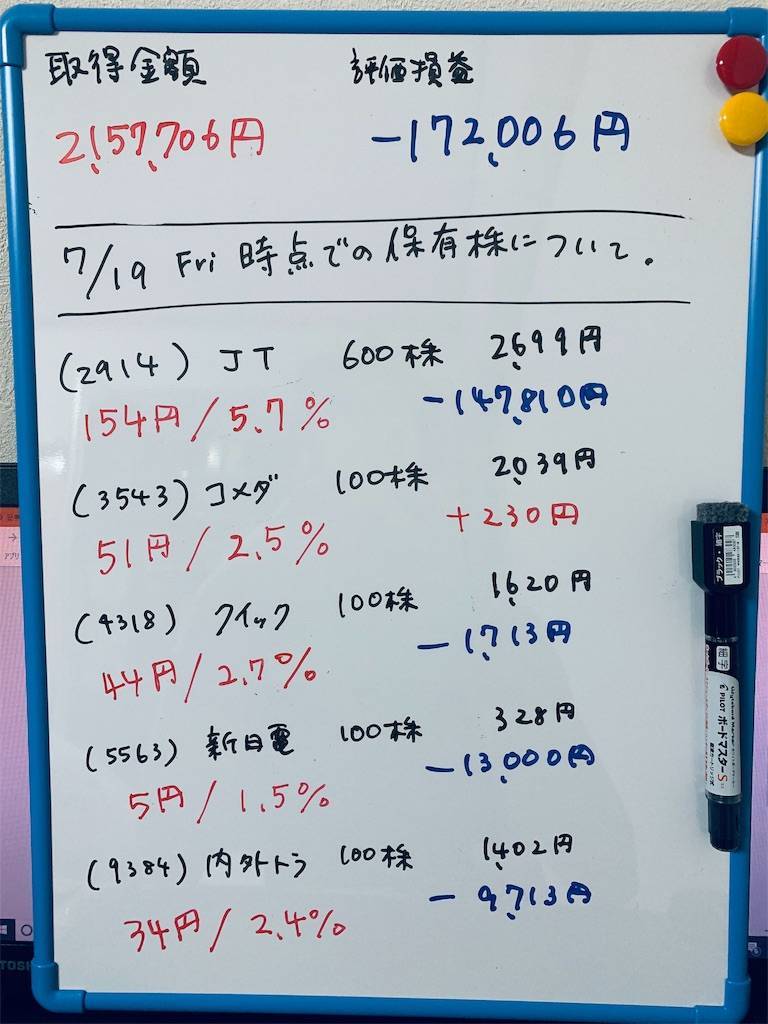 取得金額 評価損益
2,157,706円 -172,006円
7/19 Fri 時点での保有株について.
(2914) JT 600株 2,699円
154円/5.7% -147,810円
(3543) コメダ 100株 2,039円
51円/2.5% +230円
(4318) クイック 100株 1,620円
44円/2.7% -1,713円
(5563) 新日電 100株 328円
5円/1.5% -13,000円
(9384) 内外トラ 100株 1,402円
34円/2.4% -9,713円
細字
PILOT ボードマスターS